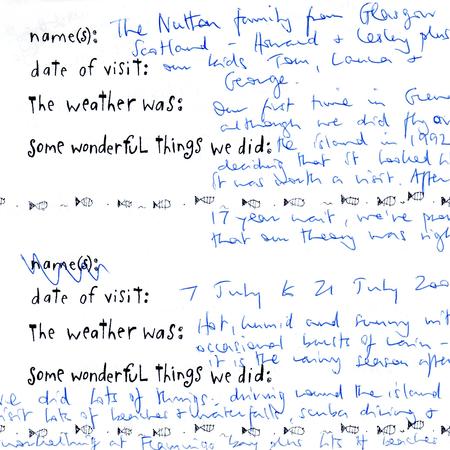 name(s): The Nutton family from Glasgow
Scotland - Howard & Lesley plus
date of visit: our kids Tom, Laura &
George.
The weather was: Our first time in Gren
although we did fly ov
some wonderful things we did: the island in 1992
deciding that it looked li
it was worth a visit. After
17 year wait, we've prov
that our theory was righ
name(s):
date of visit: 7 July to 21 July 200
The weather was: Hot, humid and sunny wit
occasional bursts of rain -
it is the rainy season after
some wonderful things we did:
we did lots of things - driving round the island
visit lots of beaches & waterfalls, scuba diving &
snorkelling at Flamingo bay plus lots of beaches